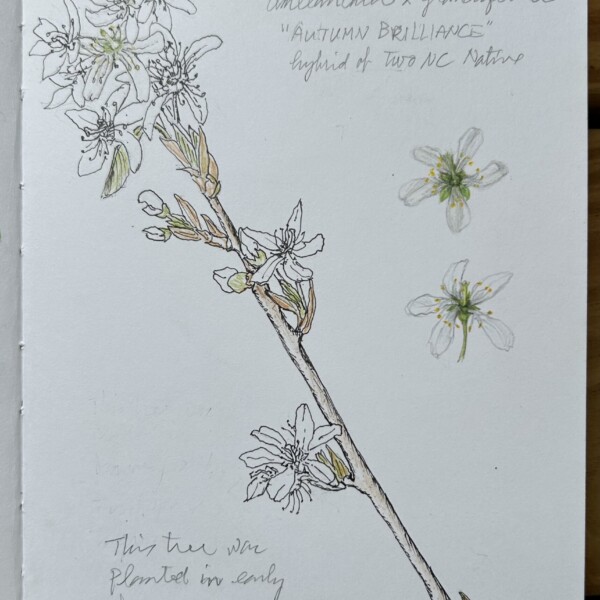 Amelanchier x grandiflora
"AUTUMN BRILLIANCE"
hybrid of Two NC Native
This tree was
planted in early